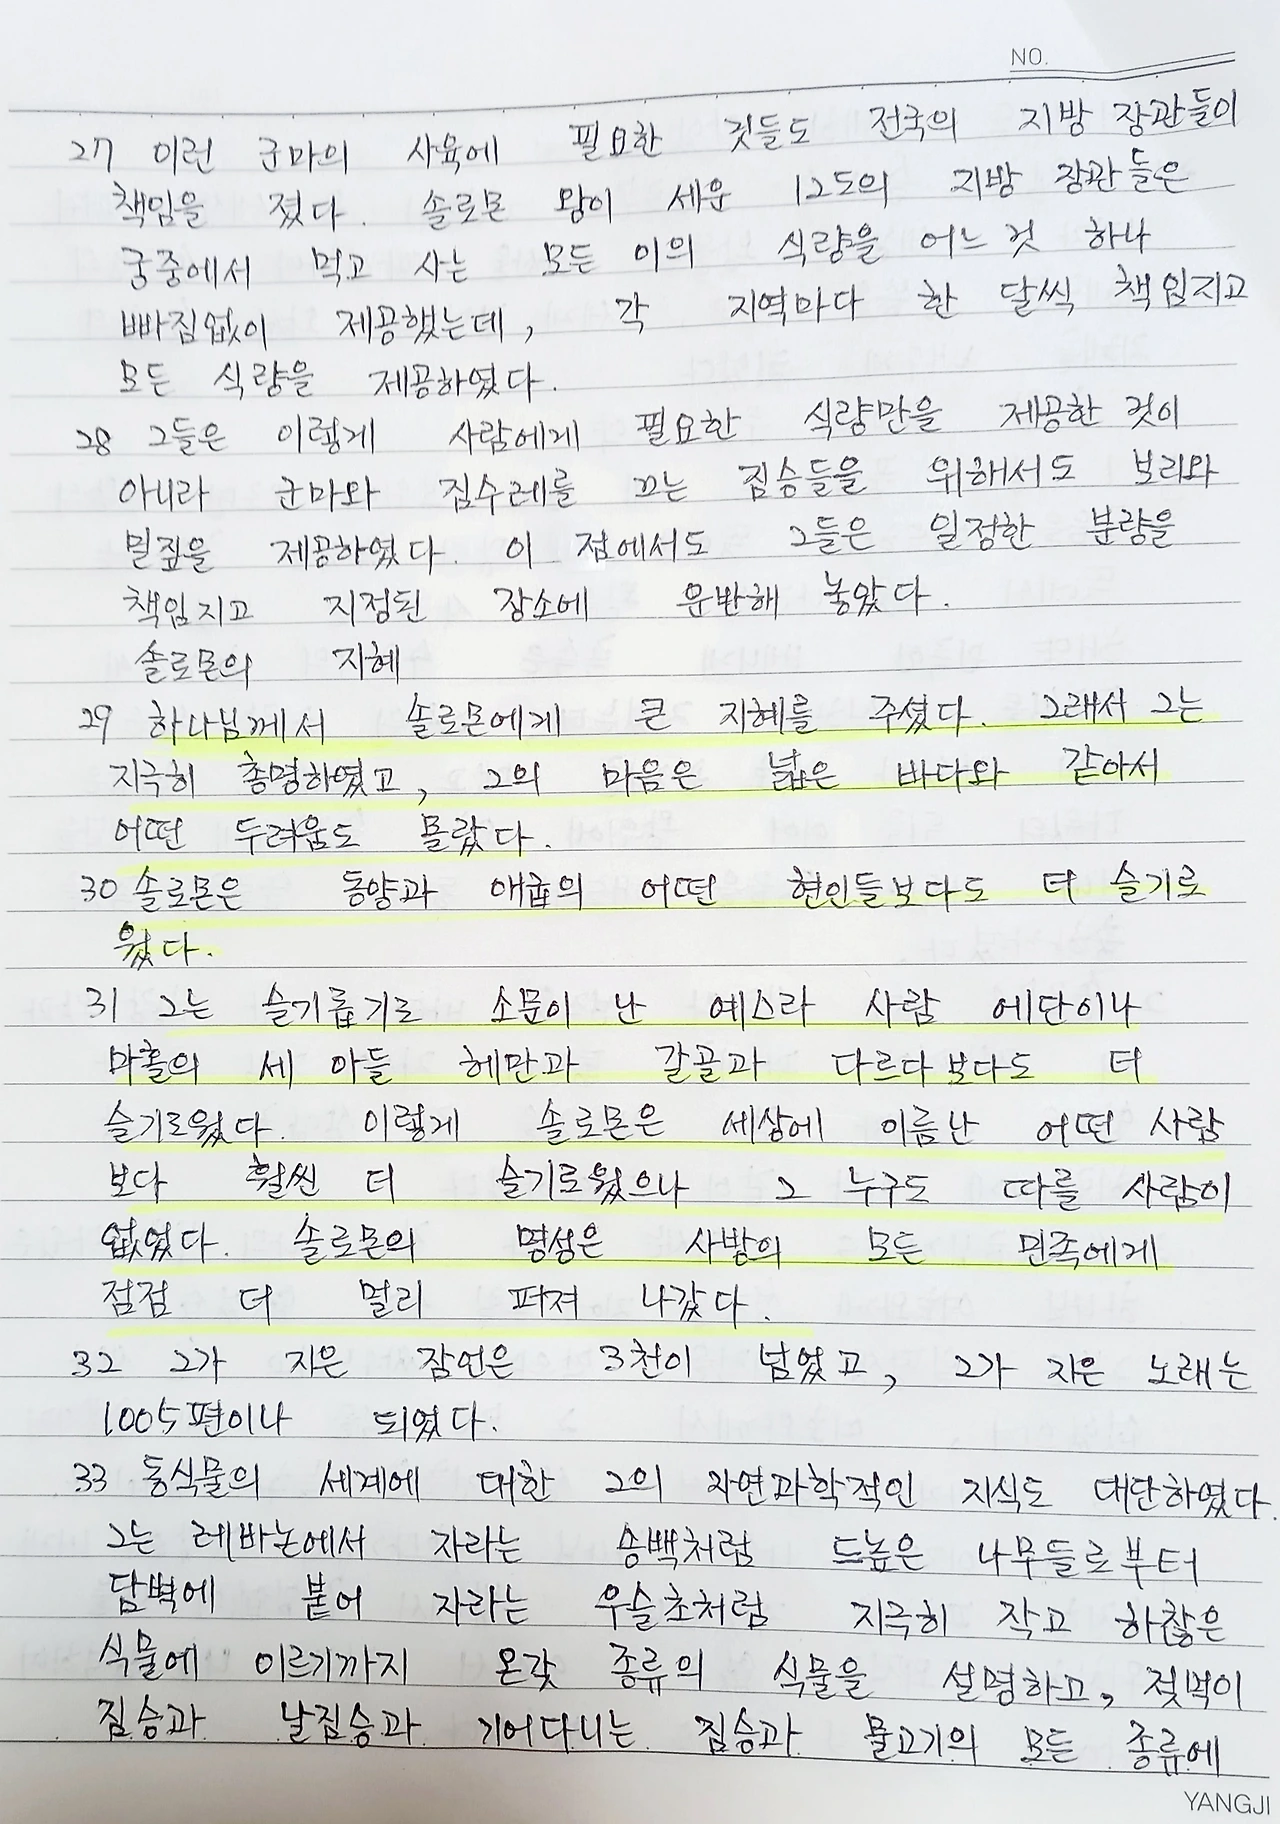 NO.
27 이런 군마의 사육에 필요한 것들도 전국의 지방 장관들이
책임을 졌다. 솔로몬 왕이 세운 12도의 지방 장관들은
궁중에서 먹고 사는 모든 이의 식량을 어느 것 하나
빠짐없이 제공했는데, 각 지역마다 한 달씩 책임지고
모든 식량을 제공하였다.
28 그들은 이렇게 사람에게 필요한 식량만을 제공한 것이
아니라 군마와 짐수레를 끄는 짐승들을 위해서도 보리와
밀짚을 제공하였다. 이 점에서도 그들은 일정한 분량을
책임지고 지정된 장소에 운반해 놓았다.
솔로몬의 지혜
29 하나님께서 솔로몬에게 큰 지혜를 주셨다. 그래서 그는
지극히 총명하였고, 그의 마음은 넓은 바다와 같아서
어떤 두려움도 몰랐다.
30 솔로몬은 동양과 애굽의 어떤 현인들보다도 더 슬기로
웠다.
31 그는 슬기롭기로 소문이 난 예스라 사람 에단이나
마홀의 세 아들 헤만과 갈골과 다르다보다도 더
슬기로웠다. 이렇게 솔로몬은 세상에 이름난 어떤 사람
보다 훨씬 더 슬기로웠으나 그 누구도 따를 사람이
없었다. 솔로몬의 명성은 사방의 모든 민족에게
점점 더 멀리 퍼져 나갔다.
32 그가 지은 잠언은 3천이 넘었고, 그가 지은 노래는
1005편이나 되었다.
33 동식물의 세계에 대한 그의 자연과학적인 지식도 대단하였다.
그는 레바논에서 자라는 송백처럼 드높은 나무들로부터
담벽에 붙어 자라는 우슬초처럼 지극히 작고 하찮은
식물에 이르기까지 온갖 종류의 식물을 설명하고, 젖먹이
짐승과 날짐승과 기어다니는 짐승과 물고기의 모든 종류에
YANGJI